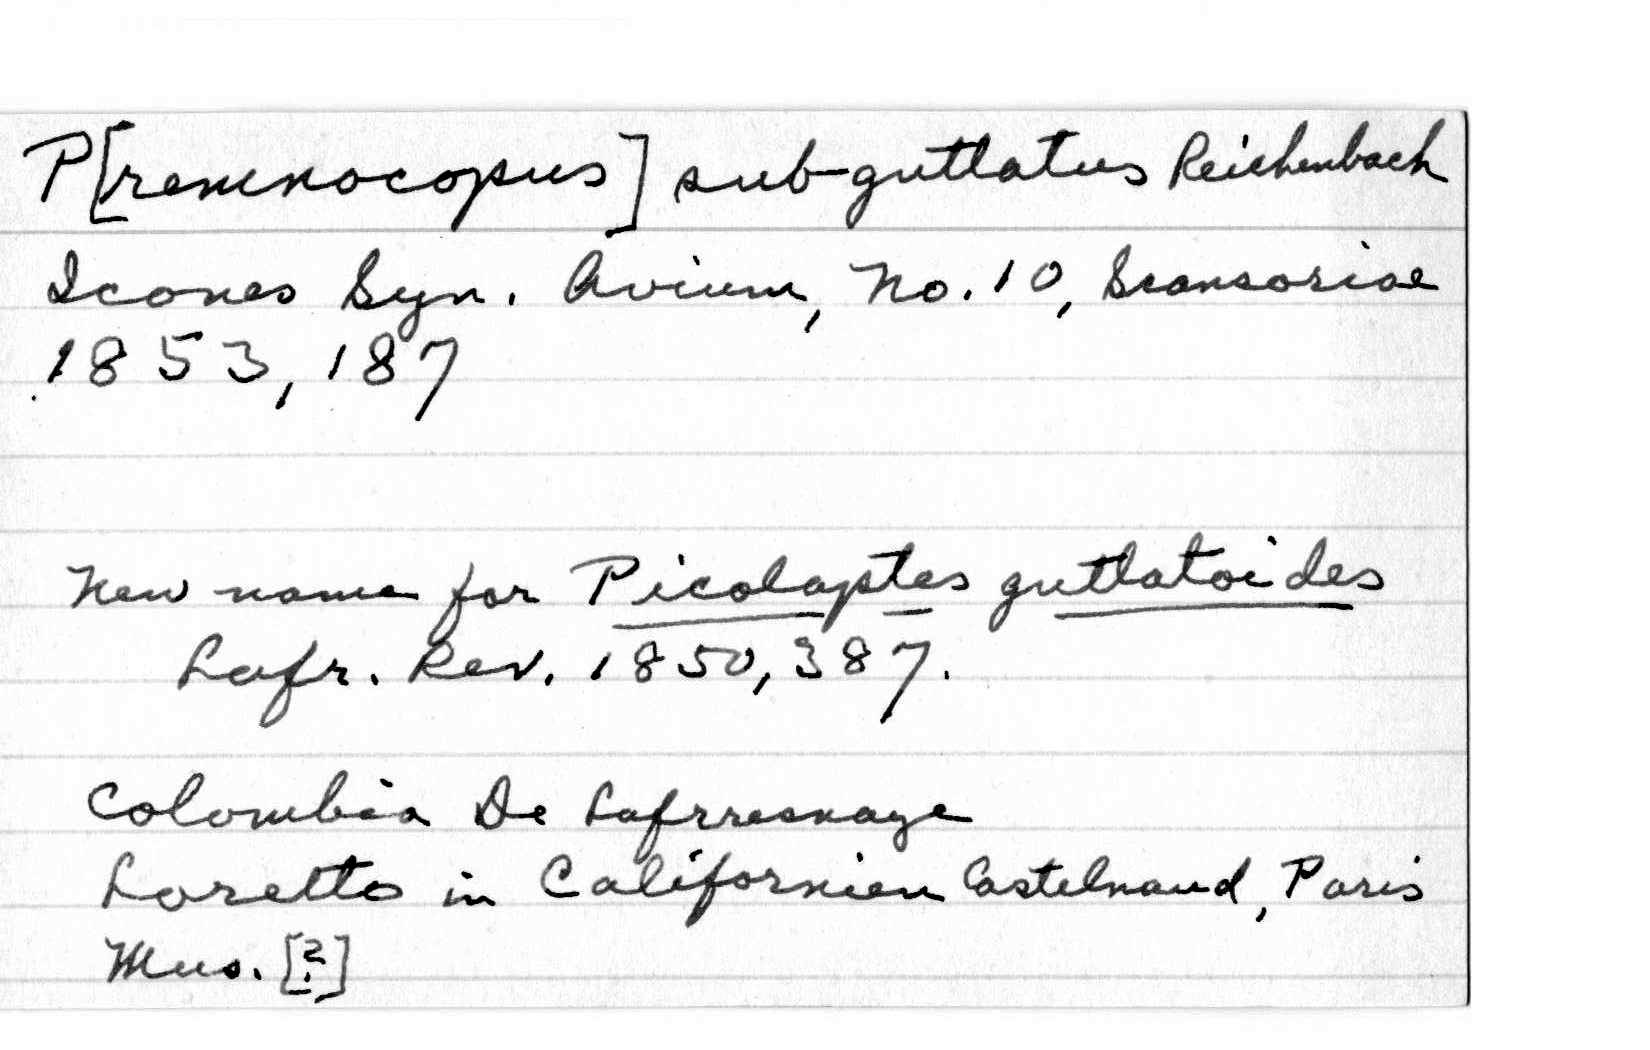 P[remnocopus] sub-guttatus Reichenbach
Icones Syn. Avium, No. 10, Scansoriae
1853, 187
New name for Picolaptes guttatoides
Lafr. Rev. 1850, 387.
Colombia De Lafrresnaye
Loretto in Californien Castelnaud, Paris
Mus. [?]